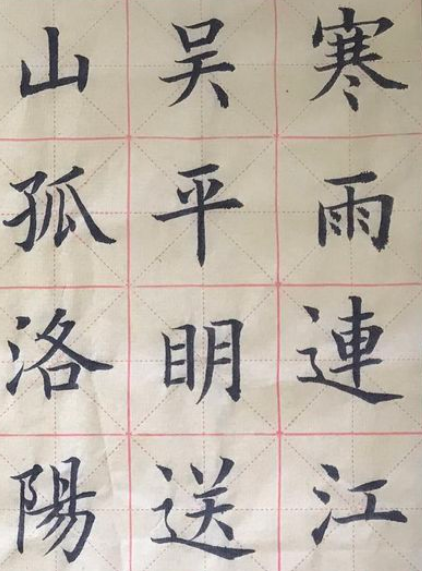 寒雨連江
吴平明送
山孤洛陽